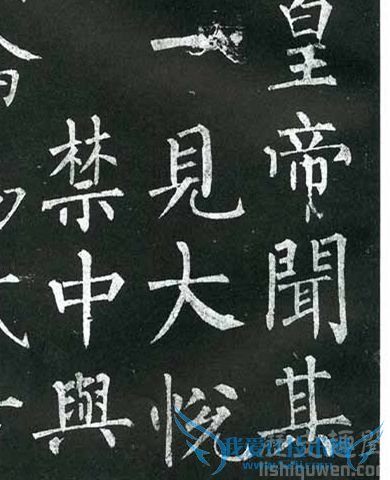 皇帝聞其
一見大悅
禁中與
lishiquwen.com